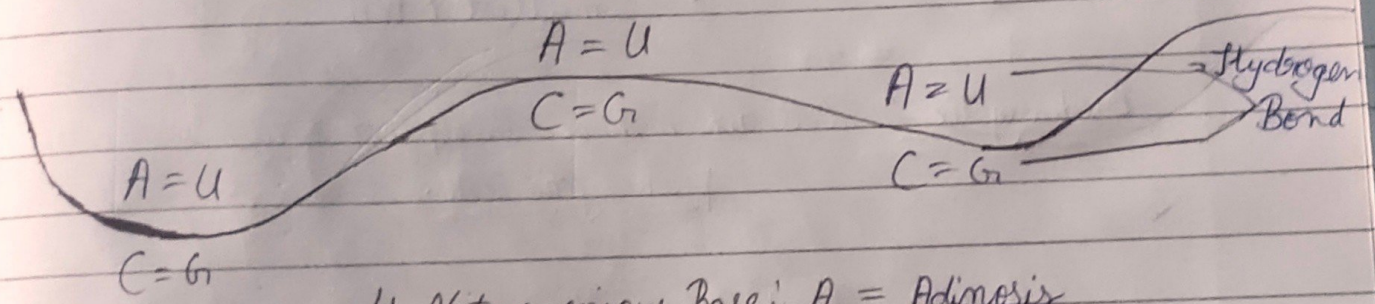 A = U
C = G
A = U
C = G
A = U
C = G
Hydrogen
Bond
Base: A = Adinosis